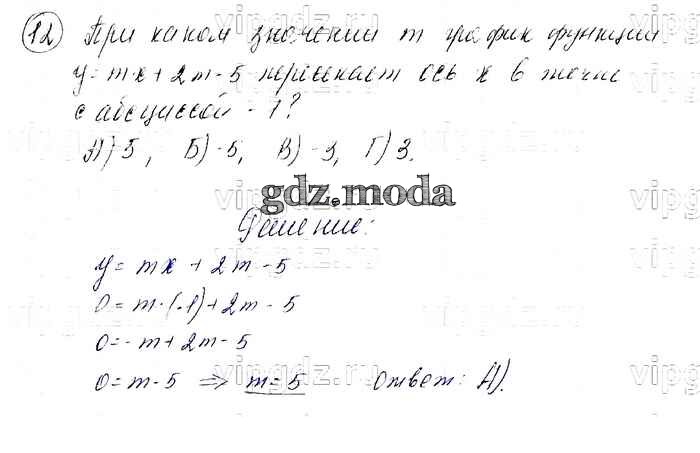 12 При каком значении m график функции
y = mx + 2m - 5 пересекает ось x в точке
с абсциссой -1?
А) 5, Б) -5, В) -3, Г) 3.
gdz.moda
Решение:
y = mx + 2m - 5
0 = m·(-1) + 2m - 5
0 = -m + 2m - 5
0 = m - 5 ⇒ m = 5 Ответ: А).
vipgdz.ru